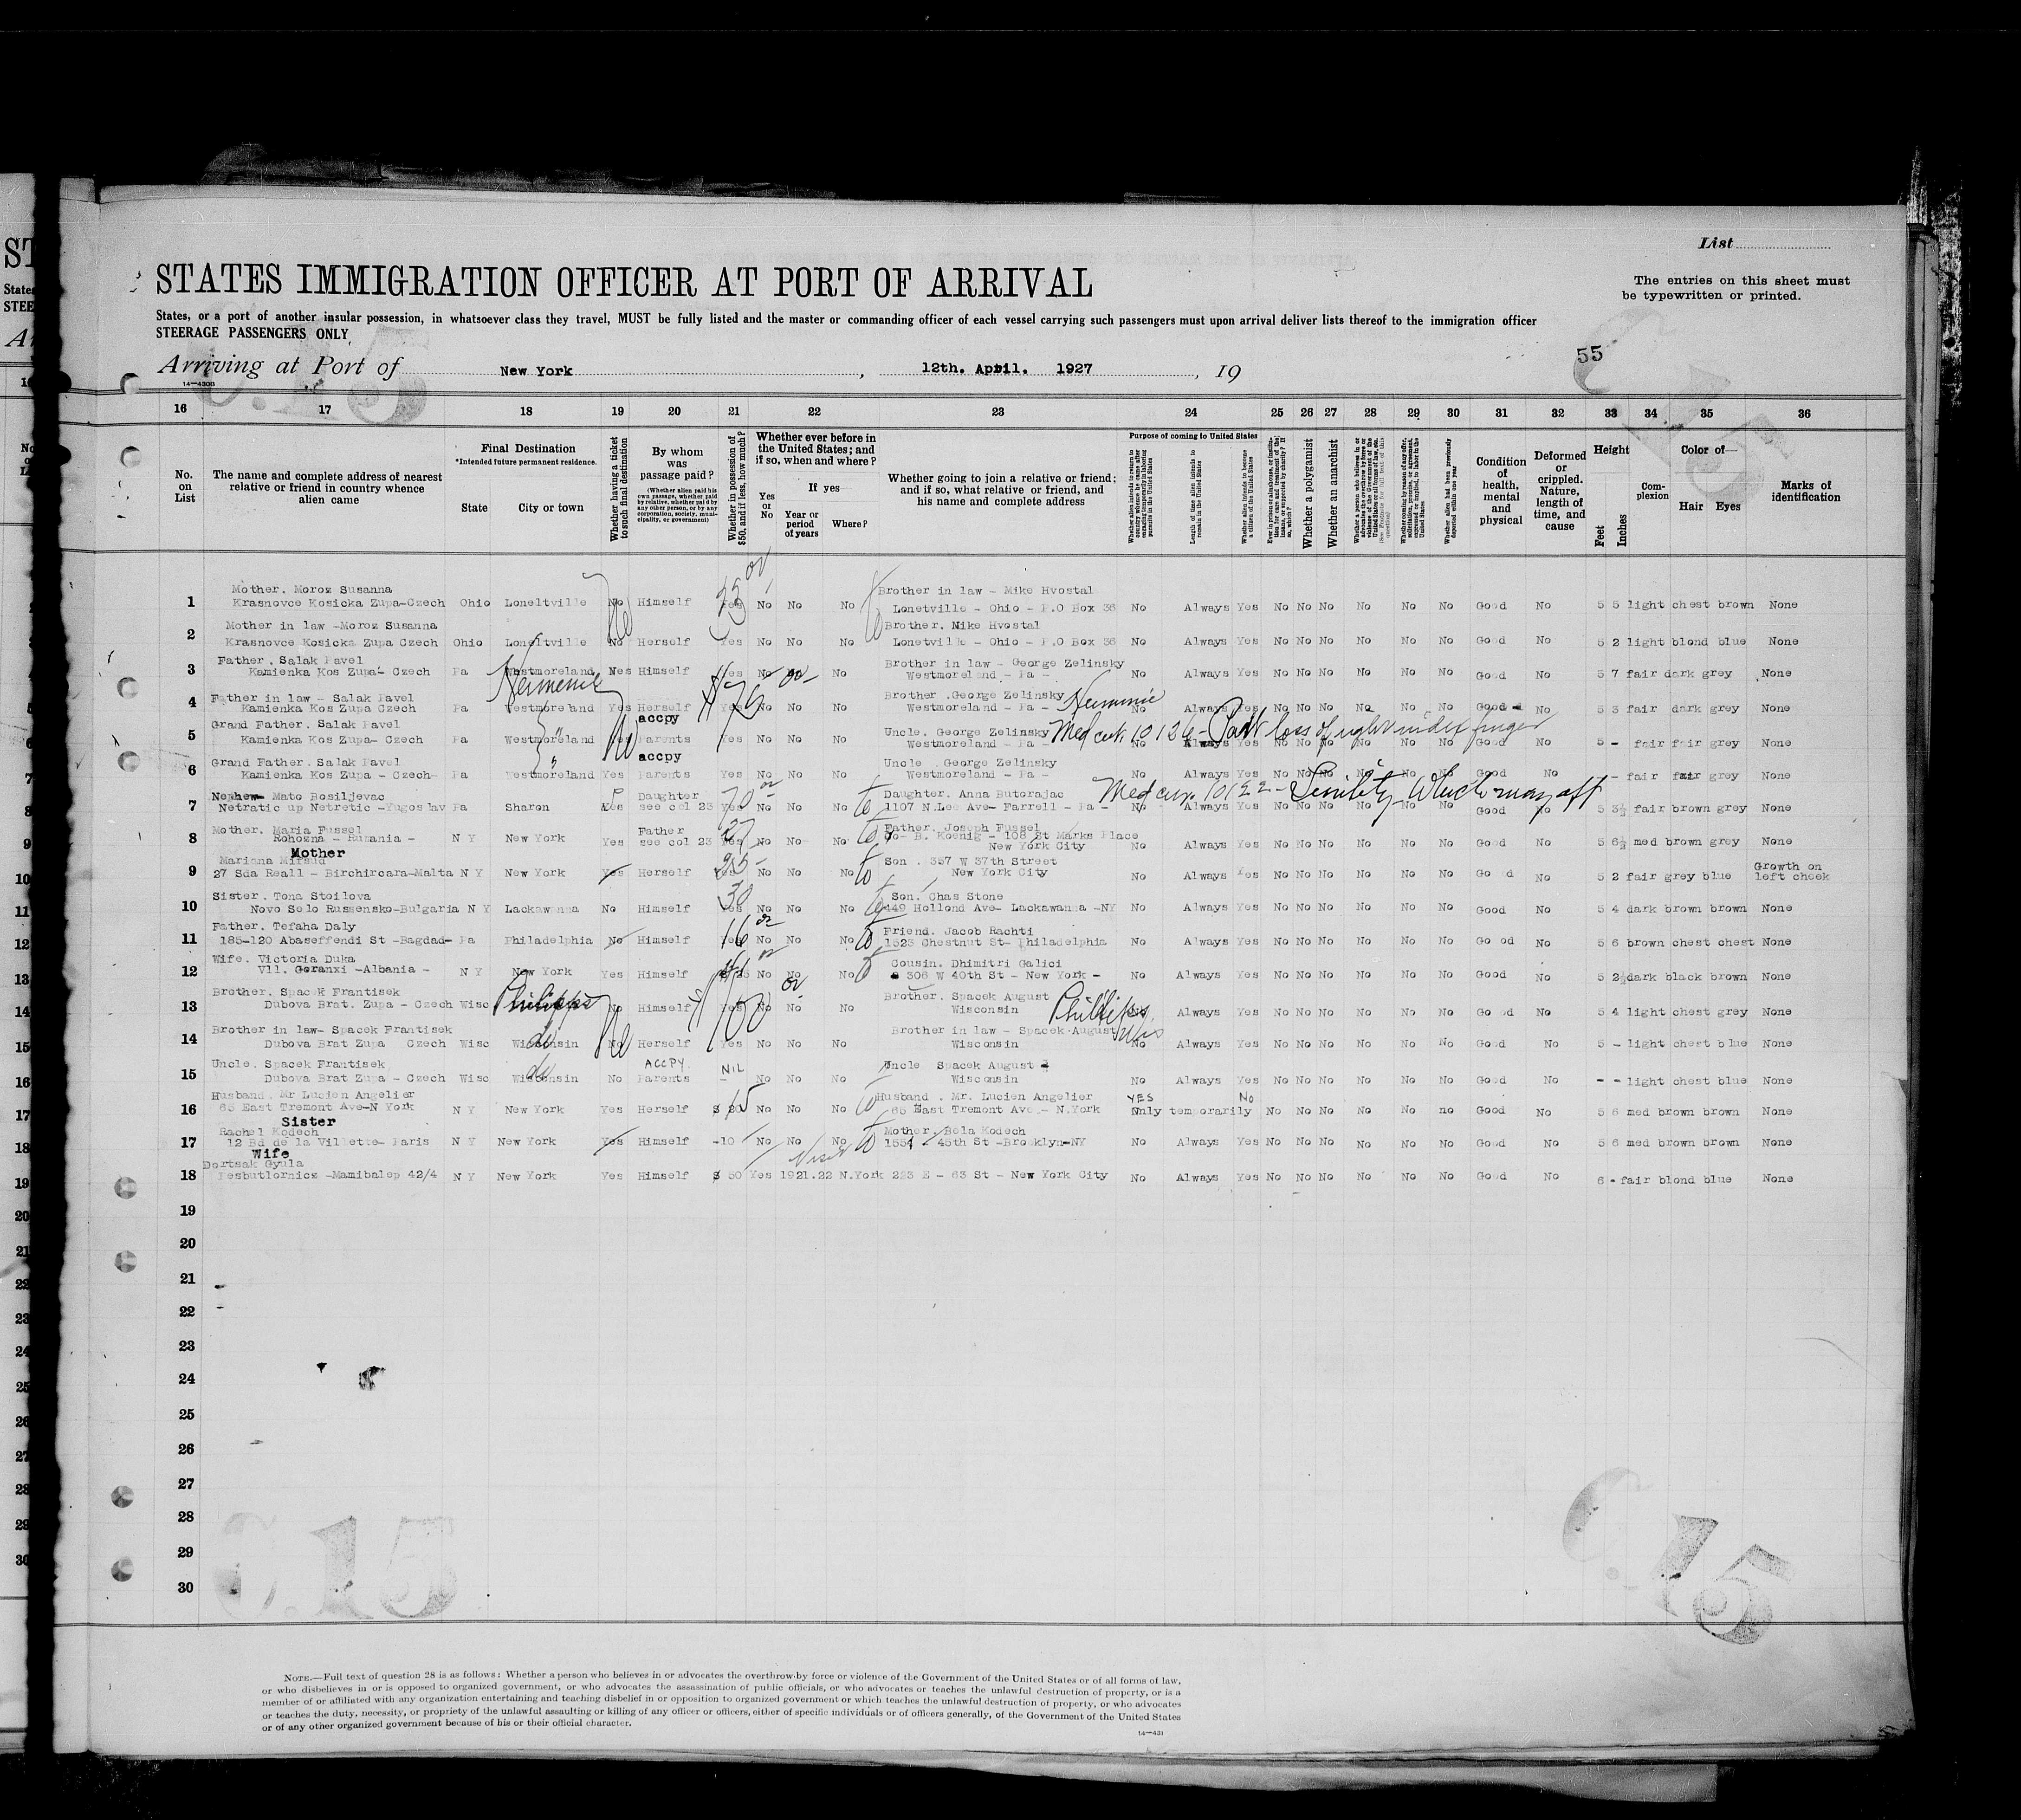 List
STATES IMMIGRATION OFFICER AT PORT OF ARRIVAL
The entries on this sheet must
be typewritten or printed.
States, or a port of another insular possession, in whatsoever class they travel, MUST be fully listed and the master or commanding officer of each vessel carrying such passengers must upon arrival deliver lists thereof to the immigration officer
STEERAGE PASSENGERS ONLY
55
Arriving at Port of New York, 12th. April. 1927, 19
14—430B
16 17 18 19 20 21 22 23 24 25 26 27 28 29 30 31 32 33 34 35 36
No. on List
The name and complete address of nearest relative or friend in country whence alien came
Final Destination
*Intended future permanent residence.
State City or town
Whether having a ticket to such final destination
By whom was passage paid?
(Whether alien paid his own passage, whether paid by relative, whether paid by any other person, or by any corporation, society, municipality, or government)
Whether in possession of $50, and if less, how much?
Whether ever before in the United States; and if so, when and where?
Yes or No
If yes—
Year or period of years
Where?
Whether going to join a relative or friend; and if so, what relative or friend, and his name and complete address
Purpose of coming to United States
Length of time alien intends to remain in the United States
Whether alien intends to become a citizen of the United States
Whether a polygamist
Whether an anarchist
Condition of health, mental and physical
Deformed or crippled. Nature, length of time, and cause
Height
Feet Inches
Complexion
Color of—
Hair Eyes
Marks of identification
Mother. Moroz Susanna Brother in law - Mike Hvostal
1 Krasnovce Kosicka Zupa-Czech Ohio Loneltville No Himself Yes No No No Lonetville - Ohio - P.O Box 36 No Always Yes No No No No No No Good No 5 5 light chest brown None
Mother in law -Moroz Susanna Brother. Mike Hvostal
2 Krasnovce Kosicka Zupa Czech Ohio Loneltville No Herself Yes No No No Lonetville - Ohio - P.O Box 36 No Always Yes No No No No No No Good No 5 2 light blond blue None
Father. Salak Pavel Brother in law - George Zelinsky
3 Kamienka Kos Zupa- Czech Pa Westmoreland Yes Himself No No Westmoreland - Pa - No Always Yes No No No No No No Good No 5 7 fair dark grey None
Father in law - Salak Pavel Brother .George Zelinsky
4 Kamienka Kos Zupa Czech Pa Westmoreland Yes Herself Yes No No No Westmoreland - Pa - No Always Yes No No No No No No Good No 5 3 fair dark grey None
Grand Father. Salak Pavel accpy Uncle. George Zelinsky Med cert. 10126 - Part loss of right index finger
5 Kamienka Kos Zupa- Czech Pa Westmoreland Yes Parents Yes No No No Westmoreland - Pa - No Always Yes No No No No No No Good No 5 - fair fair grey None
Grand Father. Salak Pavel accpy Uncle .George Zelinsky
6 Kamienka Kos Zupa - Czech- Pa Westmoreland Yes Parents Yes No No No Westmoreland - Pa - No Always Yes No No No No No No Good No - fair fair grey None
Nephew Mato Bosiljevac Daughter 70 Daughter. Anna Butorajac Med cert. 10122 - Senility Which may aff
7 Netratic up Netretic -Yugoslav Pa Sharon Yes see col 23 Yes No No No 1107 N.Lee Ave- Farrell - Pa - No Always Yes No No No No No No Good No 5 3½ fair brown grey None
Mother. Maria Fussel Father 27 Father. Joseph Fussel
8 Rohozna - Rumania - N Y New York Yes see col 23 Yes No No No B. Koenig - 108 St Marks Place
New York City No Always Yes No No No No No No Good No 5 6½ med brown grey None
Mother
Mariana Mifsud Son . 357 W 37th Street
9 27 Sda Reall - Birchircara-Malta N Y New York Yes Herself Yes No No No New York City No Always Yes No No No No No No Good No 5 2 fair grey blue Growth on left cheek
Sister. Tona Stoilova 30 Son. Chas Stone
10 Novo Selo Russensko-Bulgaria N Y Lackawanna No Himself Yes No No No 449 Hollond Ave- Lackawanna -NY No Always Yes No No No No No No Good No 5 4 dark brown brown None
Father. Tefaha Daly 16 Friend. Jacob Rachti
11 185-120 Abaseffendi St -Bagdad- Pa Philadelphia No Himself Yes No No No 1523 Chestnut St- Philadelphia No Always Yes No No No No No No Good No 5 6 brown chest chest None
Wife. Victoria Duka Cousin. Dhimitri Galici
12 Vll. Goranxi -Albania - N Y New York Yes Himself No No No 306 W 40th St - New York - No Always Yes No No No No No No Good No 5 2½ dark black brown None
Brother. Spacek Frantisek Brother. Spacek August
13 Dubova Brat. Zupa - Czech Wisc Phillips No Himself Yes No No No Wisconsin Phillips, Wis No Always Yes No No No No No No Good No 5 4 light chest grey None
Brother in law- Spacek Frantisek Brother in law - Spacek August
14 Dubova Brat Zupa Czech Wisc Wisconsin do No Herself Yes No No No Wisconsin No Always Yes No No No No No No Good No 5 - light chest blue None
Uncle. Spacek Frantisek ACCPY. NIL Uncle Spacek August
15 Dubova Brat Zupa - Czech Wisc Wisconsin do No Parents - No No No Wisconsin No Always Yes No No No No No No Good No - - light chest blue None
Husband. Mr Lucien Angelier Husband . Mr. Lucien Angelier YES No
16 65 East Tremont Ave-N York N Y New York Yes Herself No No No 65 East Tremont Ave.- N.York Only temporarily No No No No No no Good No 5 6 med brown brown None
Sister
Rachel Kodech Mother. Bela Kodech
17 12 Bd de la Villette- Paris N Y New York Yes Himself -10 No No No 1554 45th St -Brooklyn-NY No Always Yes No No No No No No Good No 5 6 med brown brown None
Wife
Dortsak Gyula
18 Yesbutlornics -Mamibalop 42/4 N Y New York Yes Himself $ 50 Yes 1921.22 N.York 223 E - 63 St - New York City No Always Yes No No No No No No Good No 6 - fair blond blue None
19
20
21
22
23
24
25
26
27
28
29
30
C.15
C.15
NOTE.—Full text of question 28 is as follows: Whether a person who believes in or advocates the overthrow by force or violence of the Government of the United States or of all forms of law,
or who disbelieves in or is opposed to organized government, or who advocates the assassination of public officials, or who advocates or teaches the unlawful destruction of property, or is a
member of or affiliated with any organization entertaining and teaching disbelief in or opposition to organized government or which teaches the unlawful destruction of property, or who advocates
or teaches the duty, necessity, or propriety of the unlawful assaulting or killing of any officer or officers, either of specific individuals or of officers generally, of the Government of the United States
or of any other organized government because of his or their official character.
14—431